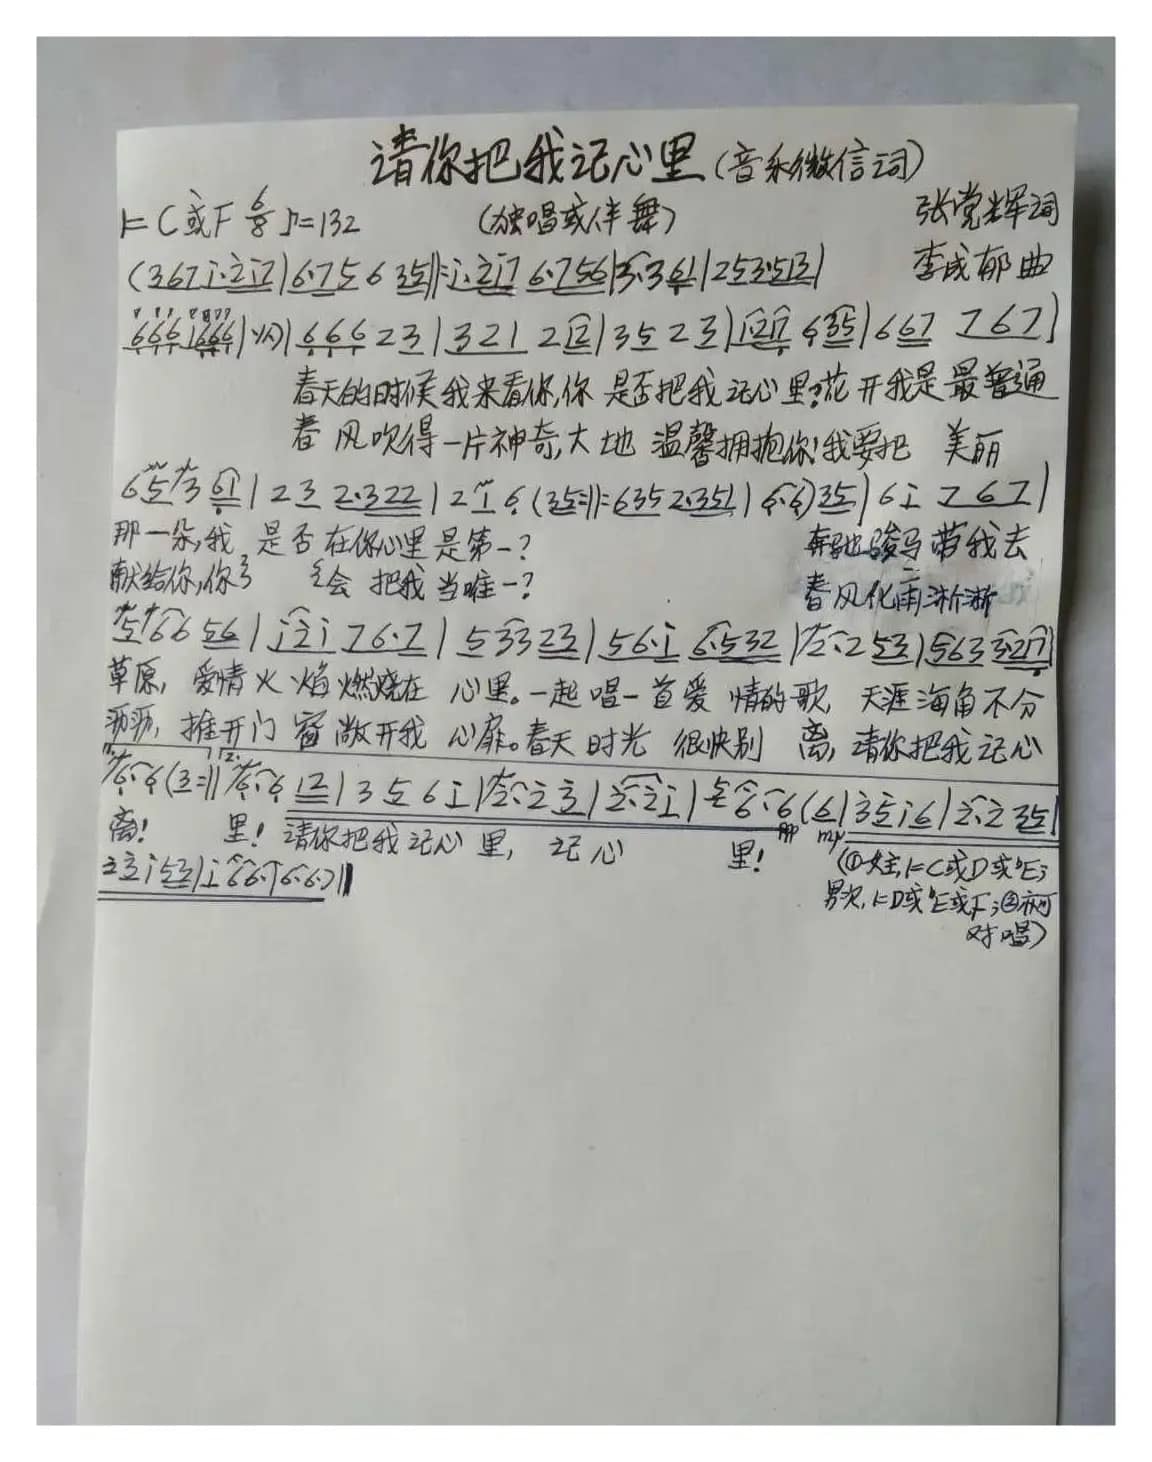 请你把我记心里(音乐微信词)
1=C或F 6/8 ♪=132 (独唱或伴舞) 张党辉词
李成郁 曲
(3 6 7 i·2i7|6·75 6 35‖:i·2i7 6·756|3·3 61|253·513|
666 1666|%)|666 23|321 212|35 23|1217 635|667 767|
春天的时候我来看你,你 是否把我记心里?花开我是最普通
春风吹得一片神奇,大地 温馨拥抱你!我要把 美丽
65 3 61|23 2·322|2 1 6 (35:‖:635 2·351|6·6)35|6i 767|
那一朵,我 是否在你心里是第一? 奔驰骏马带我去
献给你,你 会 把我当唯一? 春风化雨淅淅
566 56|i2i 76·7|5 33 23|56·i 6·532|2·2 53|563 3·217|
草原,爱情火焰燃烧在 心里。一起唱一首爱情的歌,天涯海角不分
沥沥,推开门窗敞开我 心扉。春天时光很快别离,请你把我记心
6·6(3:‖6·6 12|35 6i|2·23|2·2i|5 6·6(6|35i6|2·2 35|
离! 里!请你把我记心里,记心 里! mp
(①女主,1=C或D或♭E;
23i53|i 66·|6·6·)‖
男次,1=D或♭E或F;②亦可
对唱)